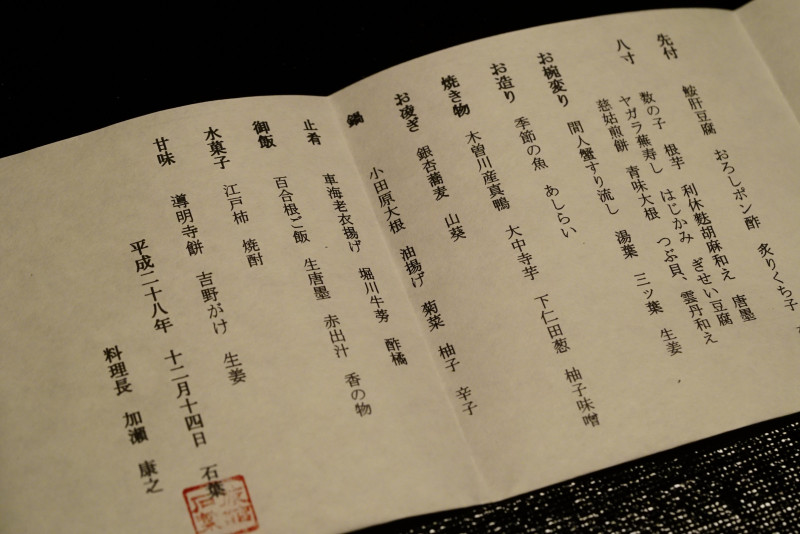 先付 鮟肝豆腐 おろしポン酢 炙りくち子
八寸 数の子 根芋 利休麩胡麻和え 唐墨
ヤガラ蕪寿し はじかみ ぎせい豆腐
慈姑煎餅 青味大根 つぶ貝、雲丹和え
お椀変り 間人蟹すり流し 湯葉 三ツ葉 生姜
お造り 季節の魚 あしらい
焼き物 木曽川産真鴨 大中寺芋 下仁田葱 柚子味噌
お凌ぎ 銀杏蕎麦 山葵
鍋 小田原大根 油揚げ 菊菜 柚子 辛子
止肴 車海老衣揚げ 堀川牛蒡 酢橘
御飯 百合根ご飯 生唐墨 赤出汁 香の物
水菓子 江戸柿 焼酎
甘味 導明寺餅 吉野がけ 生姜
平成二十八年 十二月十四日 石葉
料理長 加瀬 康之